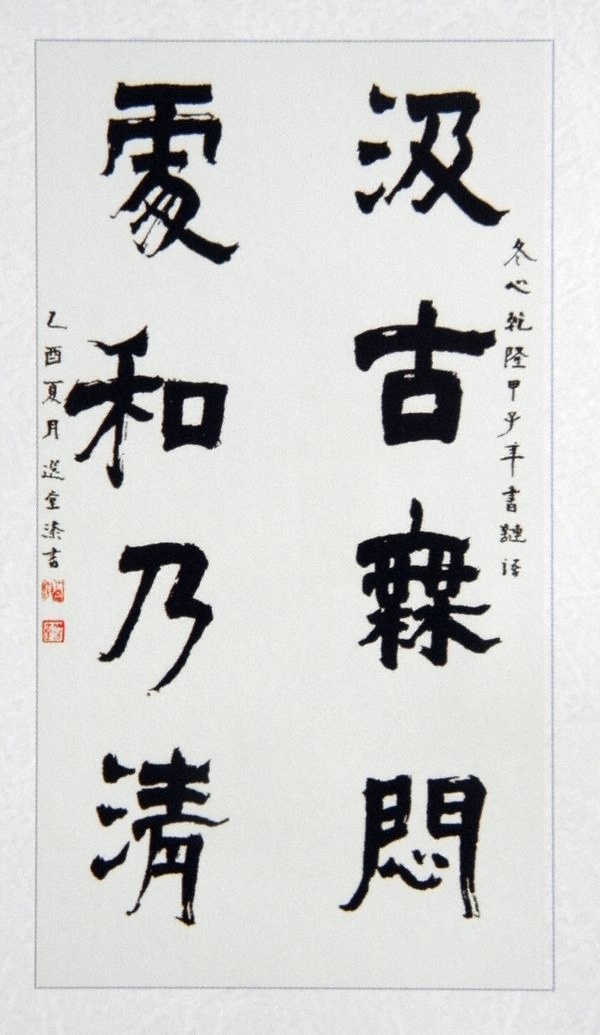 冬心乾隆甲子年書聯語
汲古無悶
處和乃清
乙酉夏月選堂漆書